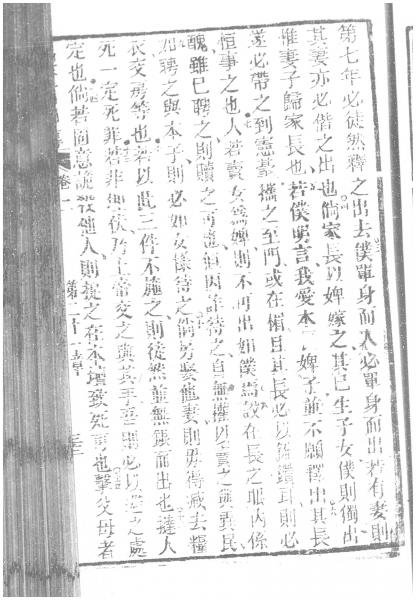 第七年必徒然釋之出去僕單身而入必單身而出若有妻則
其妻亦必偕之出也倘家長以婢嫁之其已生子女僕則獨出
惟妻子歸家長也若僕明言我愛本主婢子並不願釋出其長
遂必帶之到憲臺攜之至門或在楣且其長必以錐鑽耳則必
恒事之也人若賣女為婢則不再出如僕焉設在長之眼內係
醜雖已聘之則贖之可也但因詐待之自無權以賣之與異民
如聘之與本子則必如女樣待之倘另娶他妻則毋得減去糧
衣交房等也若以此三件不施之則徒然並無銀而出也撻人
死一定死罪若非無伏乃上帝交之與其手吾即必以逃之處
定也倘若固意詭殺他人則捉之在本壇致死可也擊父母者
卷二
第二十一章